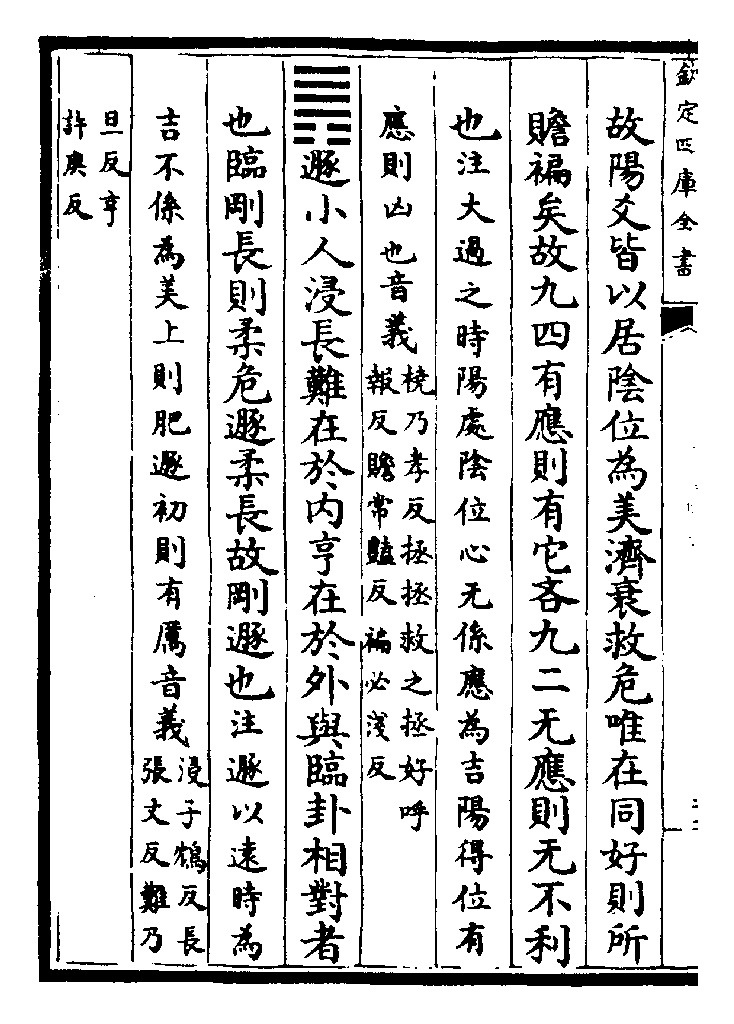 欽定四庫全書
故陽爻皆以居陰位為美濟衰救危唯在同好則所
贍褊矣故九四有應則有它吝九二无應則无不利
也注大過之時陽處陰位心无係應為吉陽得位有
應則凶也音義橈乃孝反拯拯救之拯好呼
報反贍常豔反褊必淺反
䷠遯小人浸長難在於内亨在於外與臨卦相對者
也臨剛長則柔危遯柔長故剛遯也注遯以遠時為
吉不係為美上則肥遯初則有厲音義浸子鴆反長
張丈反難乃
旦反亨
許庚反